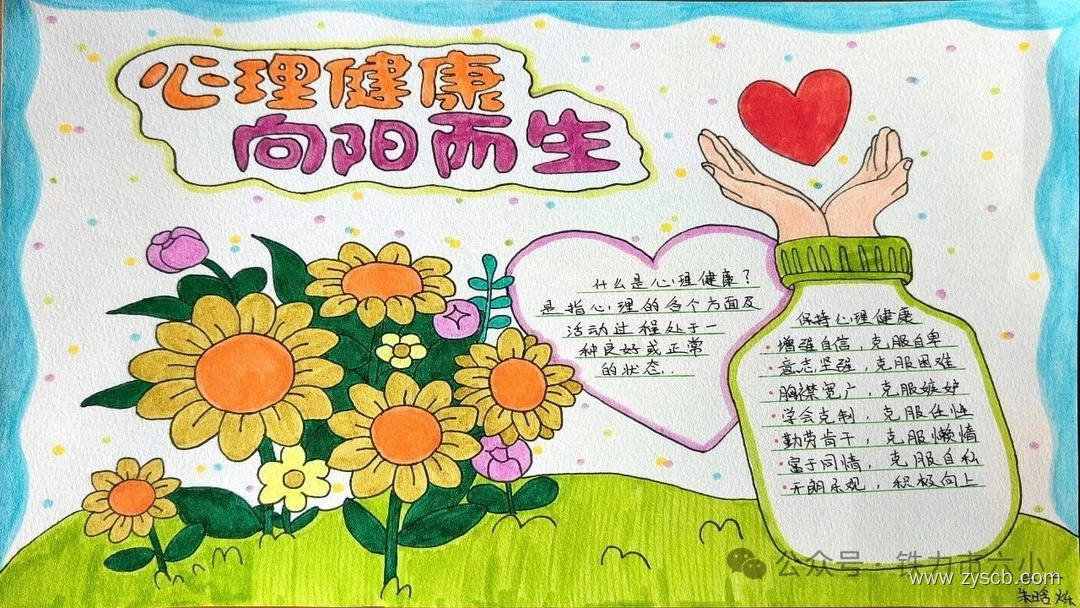 心理健康
向阳而生
什么是心理健康？
是指心理的各个方面及
活动过程处于一
种良好或正常
的状态..
保持心理健康
·增强自信，克服自卑
·意志坚强，克服困难
·胸襟宽广，克服嫉妒
·学会克制，克服任性
·勤劳肯干，克服懒惰
·富于同情，克服自私
·开朗乐观，积极向上
公众号·铁力市六小
www.zyscb.com